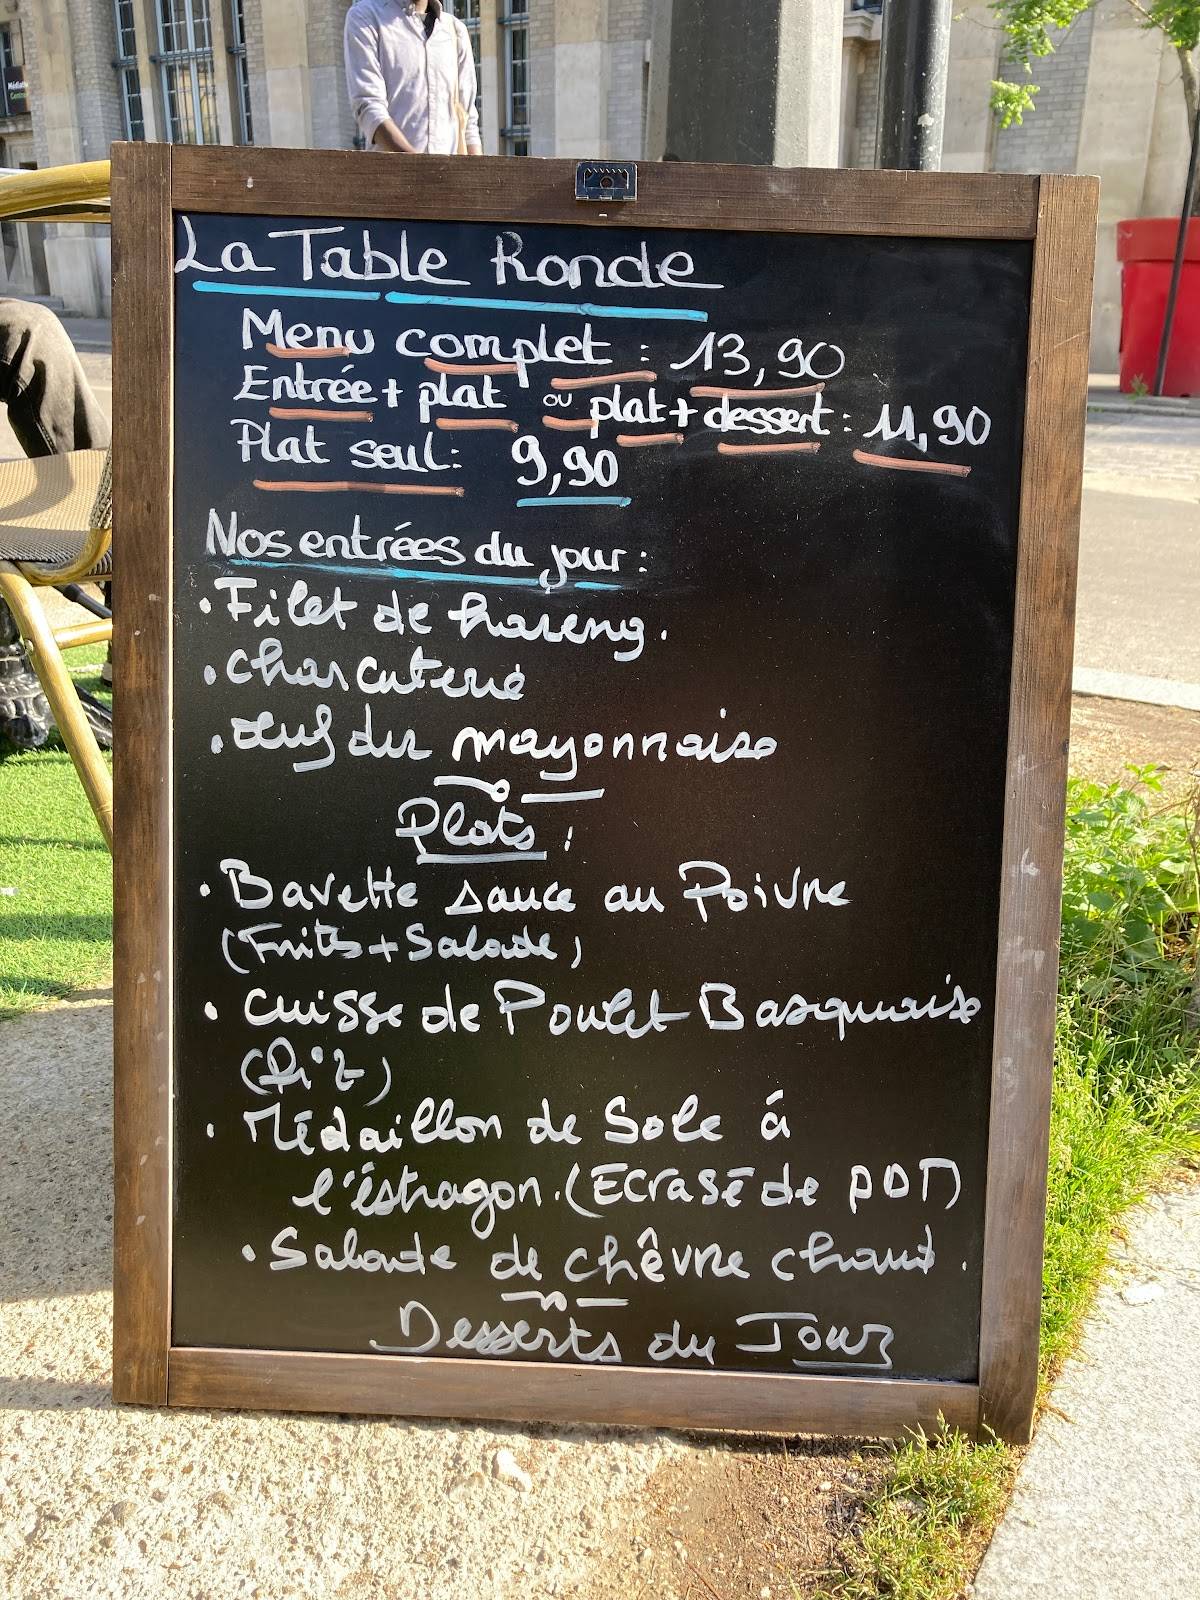 Médiath
Centra
La Table Ronde
Menu complet : 13,90
Entrée + plat ou plat + dessert : 11,90
Plat seul : 9,90
Nos entrées du jour :
• Filet de hareng.
• charcuterie
• œuf dur mayonnaise
Plats :
• Bavette sauce au Poivre
(Frites + Salade)
• cuisse de Poulet Basquaise
(Riz)
• Médaillon de Sole à
l'éstragon. (Ecrasé de PDT)
• Salade de chêvre chaud.
Desserts du Jour